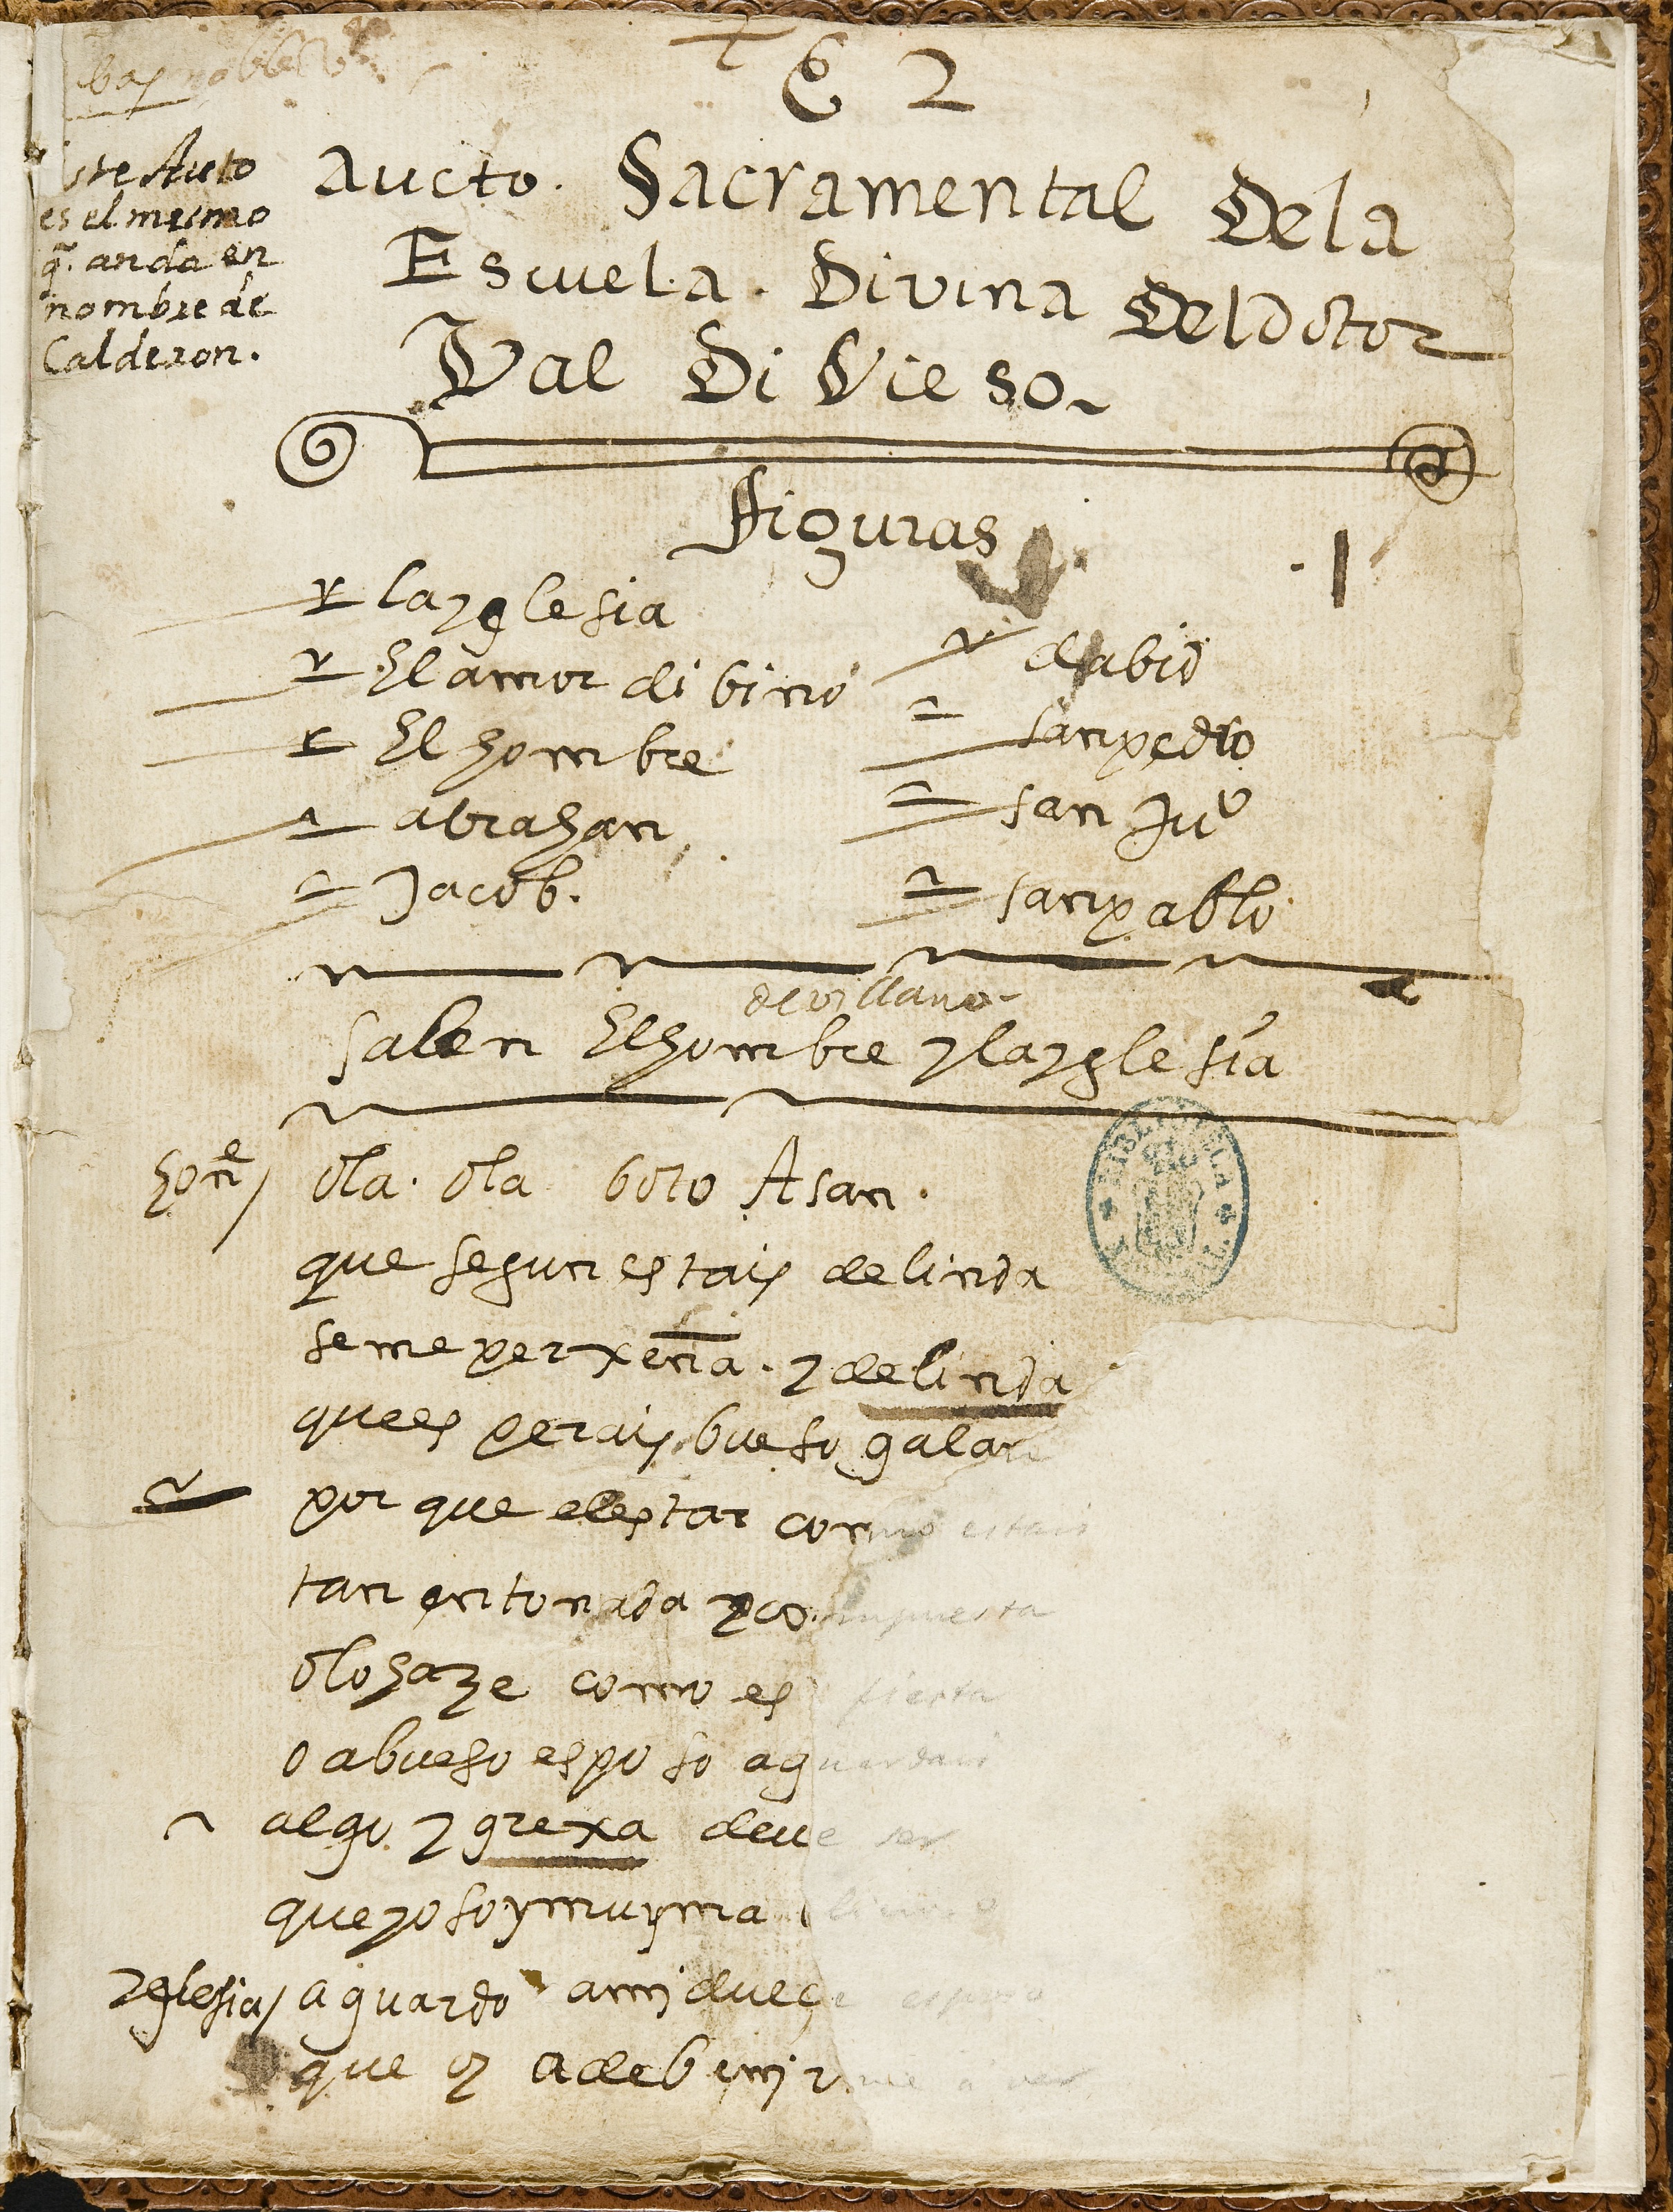 C 2
Este Auto
es el mesmo
q̃. anda en
nombre de
Calderon.
Aucto. Sacramental Dela
Escuela. Divina Deldotor
Val Di Vieso
Figuras
la yglesia
El amor dibino
El hombre
abrahan
Jacob.
dabid
san pedro
san Juº
san pablo
de villano
salen El hombre y la yglesia
honᵉ/ ola. ola boto A san.
que segun estais de linda
se me perxeña. y delinda
que esperais bueso galan
por que el estar como estais
tan entonada y compuesta
o lo haze como es fiesta
o a bueso esposo aguardais
algo ygrexa deve ser
que yo soy muy malicioso
yglesia/ aguardo a mi dueño esposo
que oy a de benirme a ver